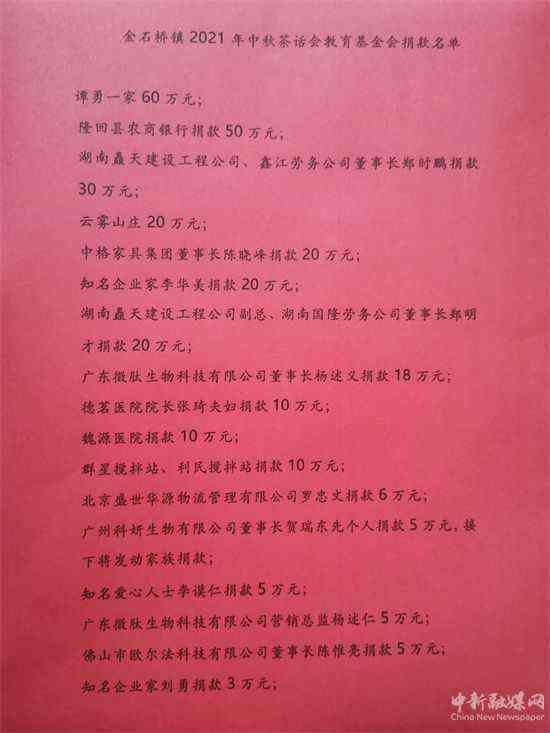 金石桥镇 2021 年中秋茶话会教育基金会捐款名单
谭勇一家 60 万元；
隆回县农商银行捐款 50 万元；
湖南矗天建设工程公司、鑫江劳务公司董事长郑时鹏捐款
30 万元；
云雾山庄 20 万元；
中格家具集团董事长陈晓峰捐款 20 万元；
知名企业家李华美捐款 20 万元；
湖南矗天建设工程公司副总、湖南国隆劳务公司董事长郑明
才捐款 20 万元；
广东微肽生物科技有限公司董事长杨述义捐款 18 万元；
德茗医院院长张琦夫妇捐款 10 万元；
魏源医院捐款 10 万元；
群星搅拌站、利民搅拌站捐款 10 万元；
北京盛世华源物流管理有限公司罗忠文捐款 6 万元；
广州科妍生物有限公司董事长贺瑞东先个人捐款 5 万元，接
下将发动家族捐款；
知名爱心人士李谟仁捐款 5 万元；
广东微肽生物科技有限公司营销总监杨述仁 5 万元；
佛山市欧尔法科技有限公司董事长陈惟亮捐款 5 万元；
知名企业家刘勇捐款 3 万元；
中新融媒网
China New Newspaper